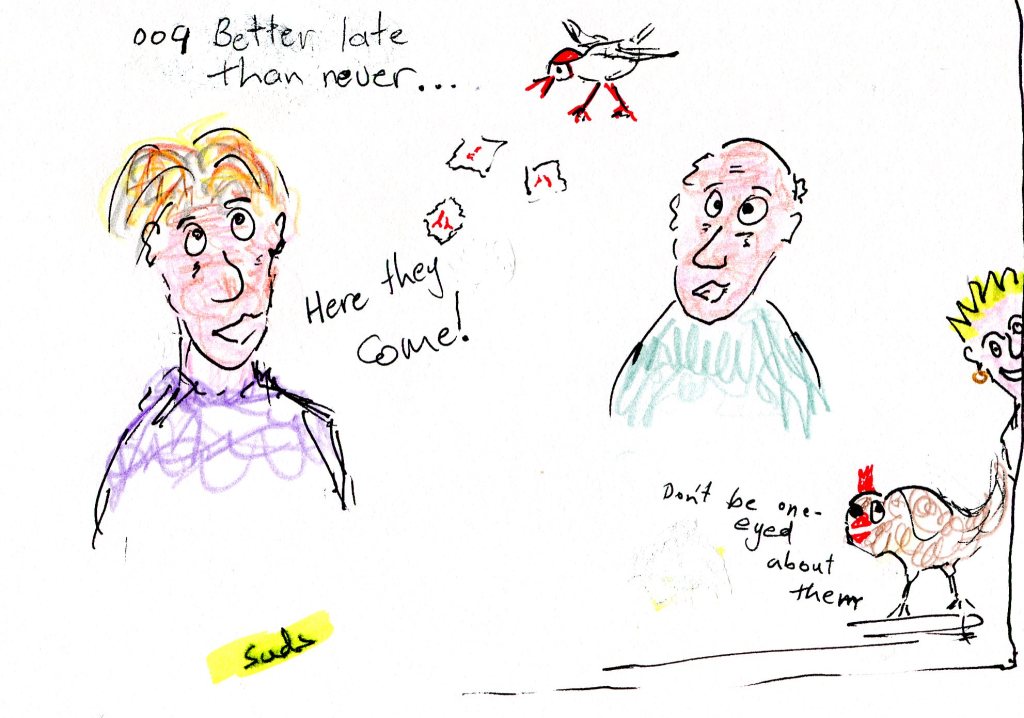 009 Better late
than never...
Here they
Come!
Don't be one-
eyed
about
them
Suds